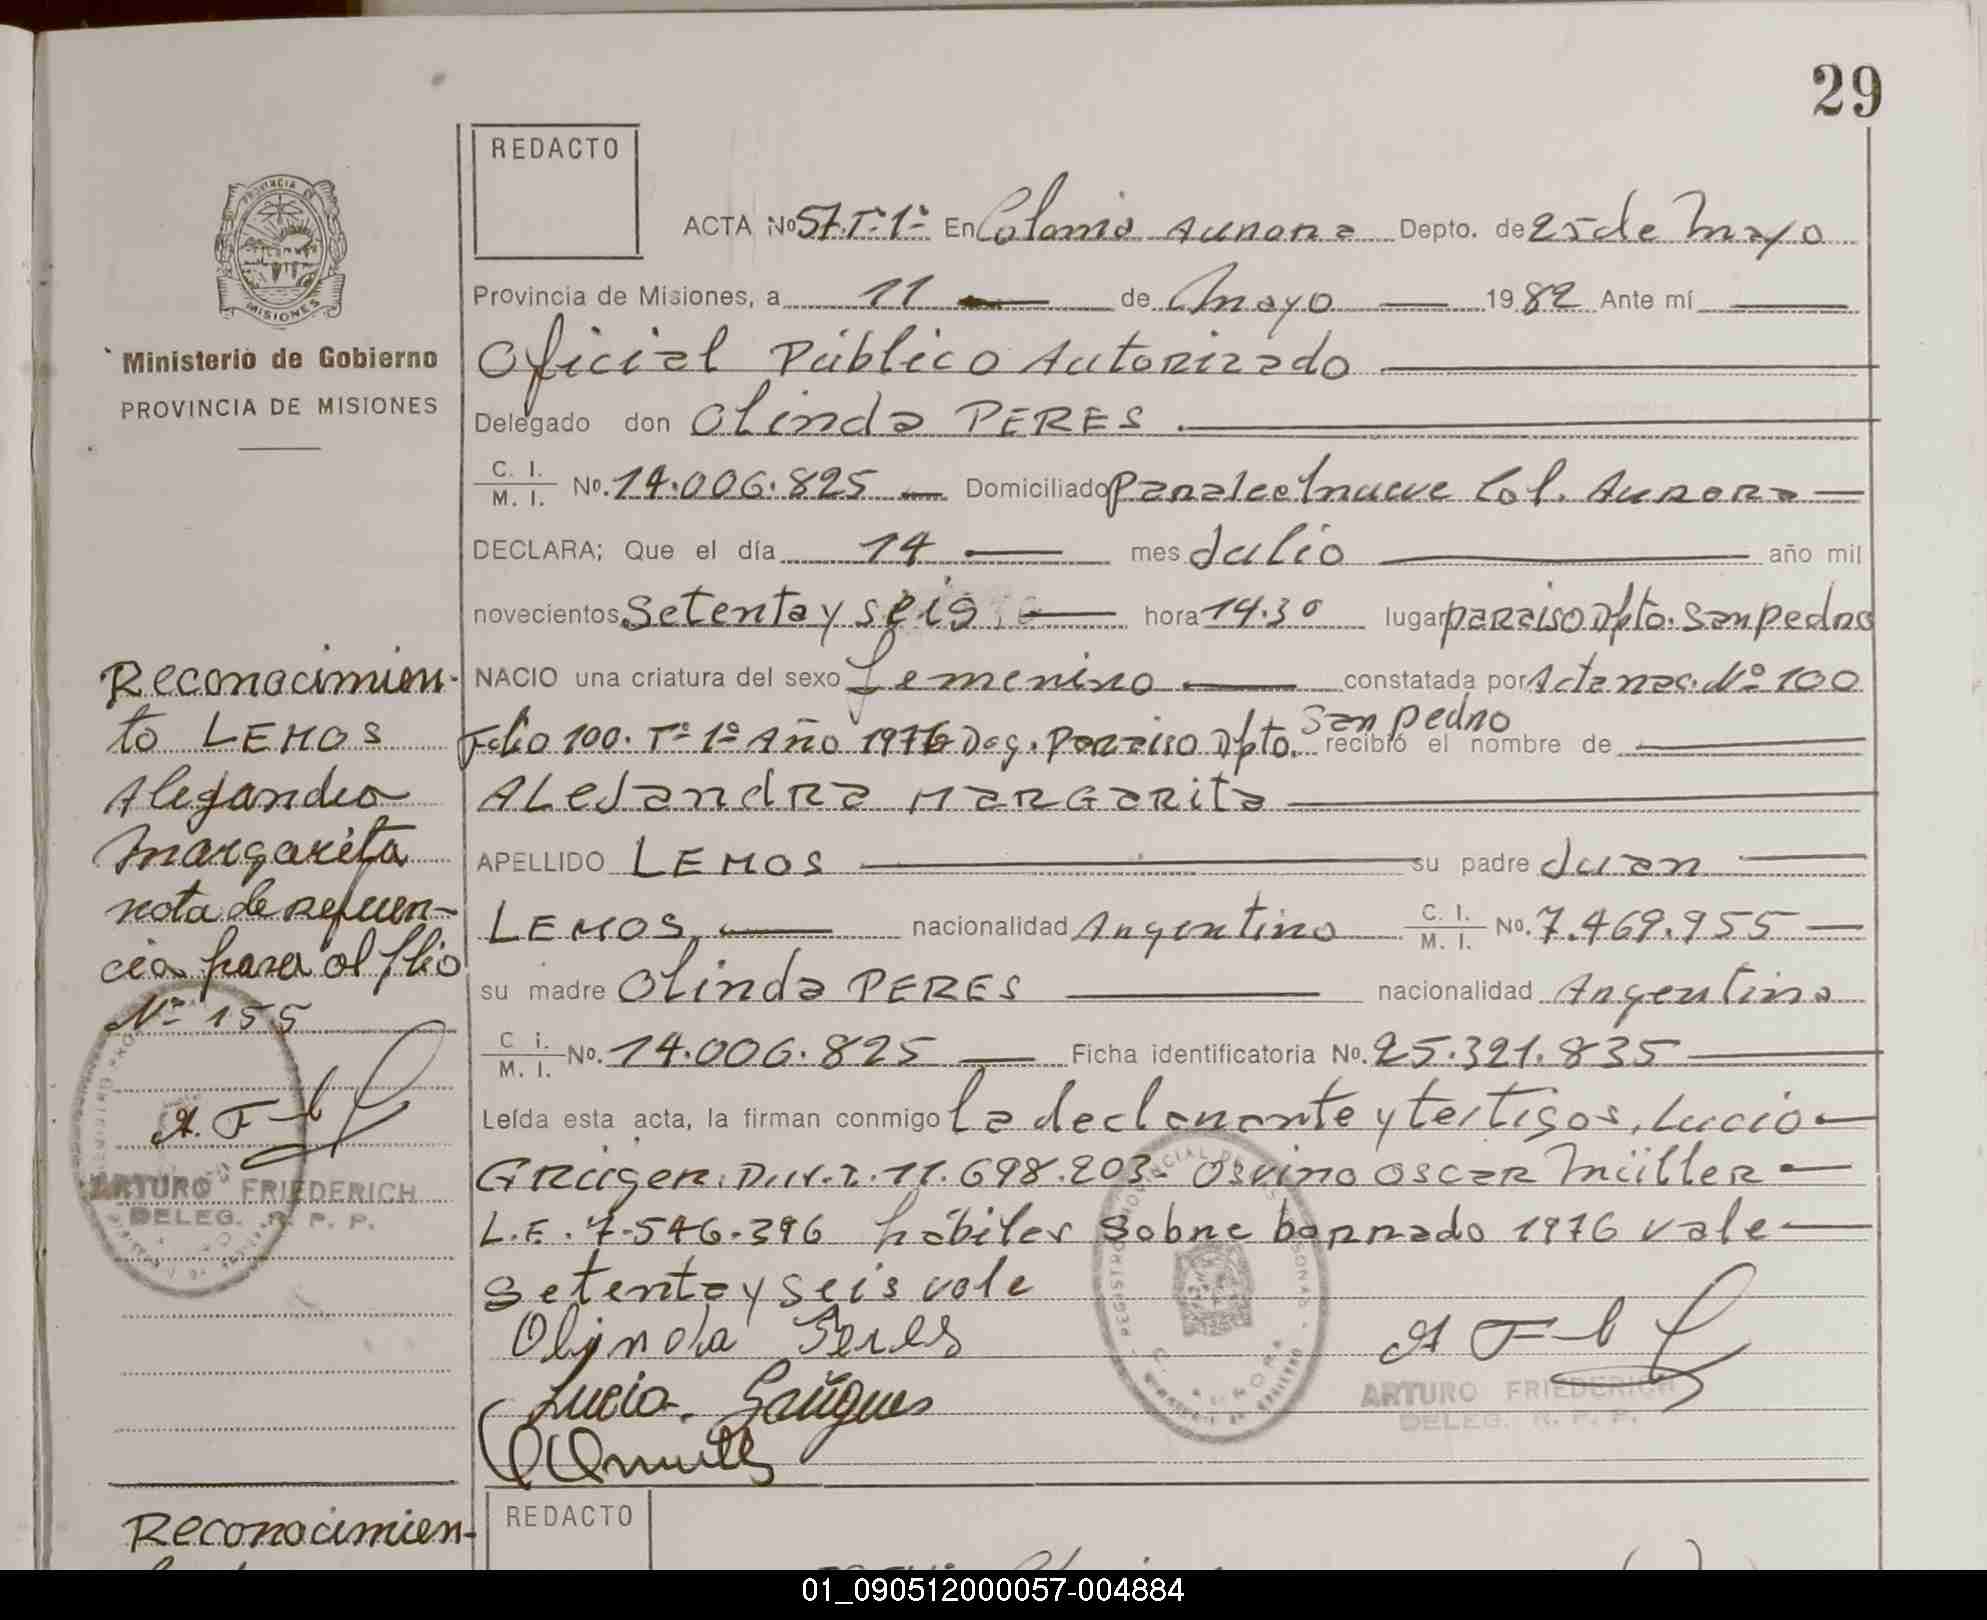 29
REDACTO
ACTA No 57.T-1º En Colonia Aurora Depto. de 25 de Mayo
Provincia de Misiones, a 11 de Mayo 1982 Ante mí
Oficial Público Autorizado
Delegado don Olinda PERES
C. I. / M. I. No. 14.006.825 Domiciliado Col. Aurora
DECLARA; Que el día 14 mes Julio año mil
novecientos Setenta y seis hora 14.30 lugar paraiso Dpto. San pedro
NACIO una criatura del sexo femenino constatada por Acta nac. Nº 100
Folio 100. Tº 1º Año 1976 Deg. Paraiso Dpto. San pedro recibió el nombre de
ALeJandRa MaRGaRita
APELLIDO LEMOS su padre Juan
LEMOS nacionalidad Argentino C. I. / M. I. No. 7.469.955
su madre Olinda PERES nacionalidad Argentina
C i. / M. I. No. 14.006.825 Ficha identificatoria No. 25.321.835
Leída esta acta, la firman conmigo la declarante y testigos, Lucio
Grügen. D.N.I. 11.698.203- Osvino Oscar Müller
L.E. 7.546.396 hábiles Sobre borrado 1976 vale
Setenta y seis vale
Olinda Peres
Lucio
ARTURO FRIEDERICH
DELEG. R. P. P.
PROVINCIA DE
MISIONES
Ministerio de Gobierno
PROVINCIA DE MISIONES
Reconocimien-
to LEMOS
Alejandra
Margarita
nota de referen-
cia para al flio
Nº 155
ARTURO FRIEDERICH
DELEG. R. P. P.
Reconocimien-
REDACTO
01_090512000057-004884